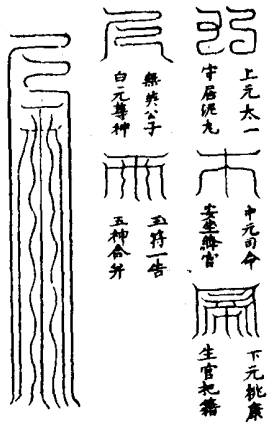 上元太一
守居泥丸
中元司命
安坐絳宮
下元桃康
生宮把籍
無英公子
白元尊神
玉符一告
五神合并